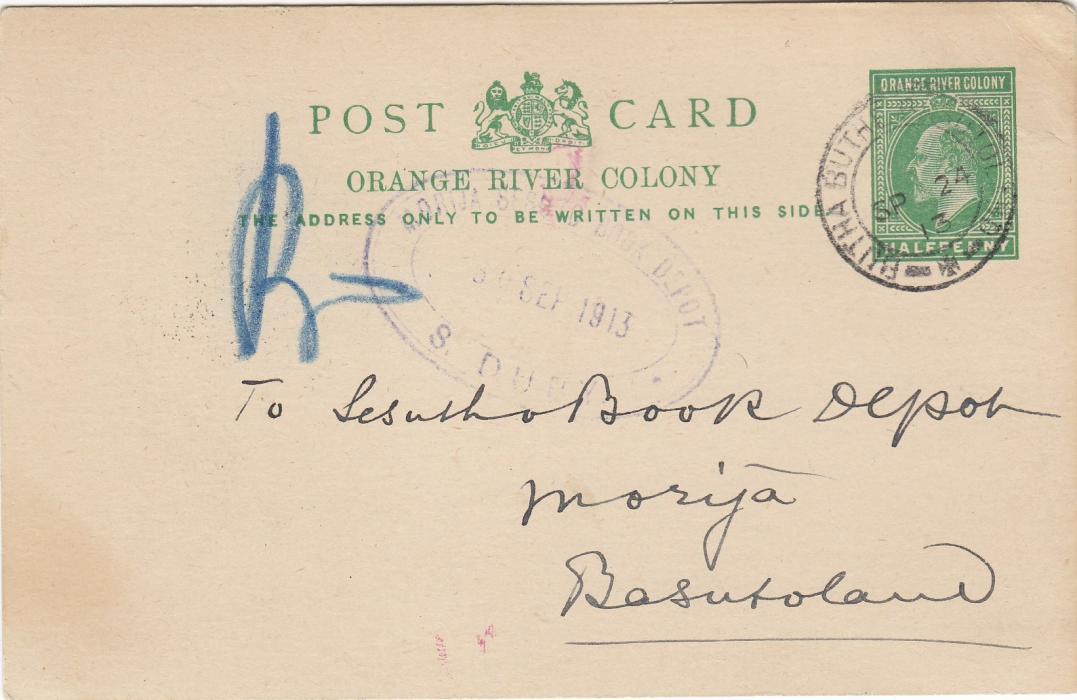 POST CARD
ORANGE RIVER COLONY
THE ADDRESS ONLY TO BE WRITTEN ON THIS SIDE
ORANGE RIVER COLONY
HALFPENNY
BUTHA BUTHE
SP 24
13
MORIJA BOOK DEPOT
30 SEP 1913
S.
To Sesutho Book Depot
Morija
Basutoland